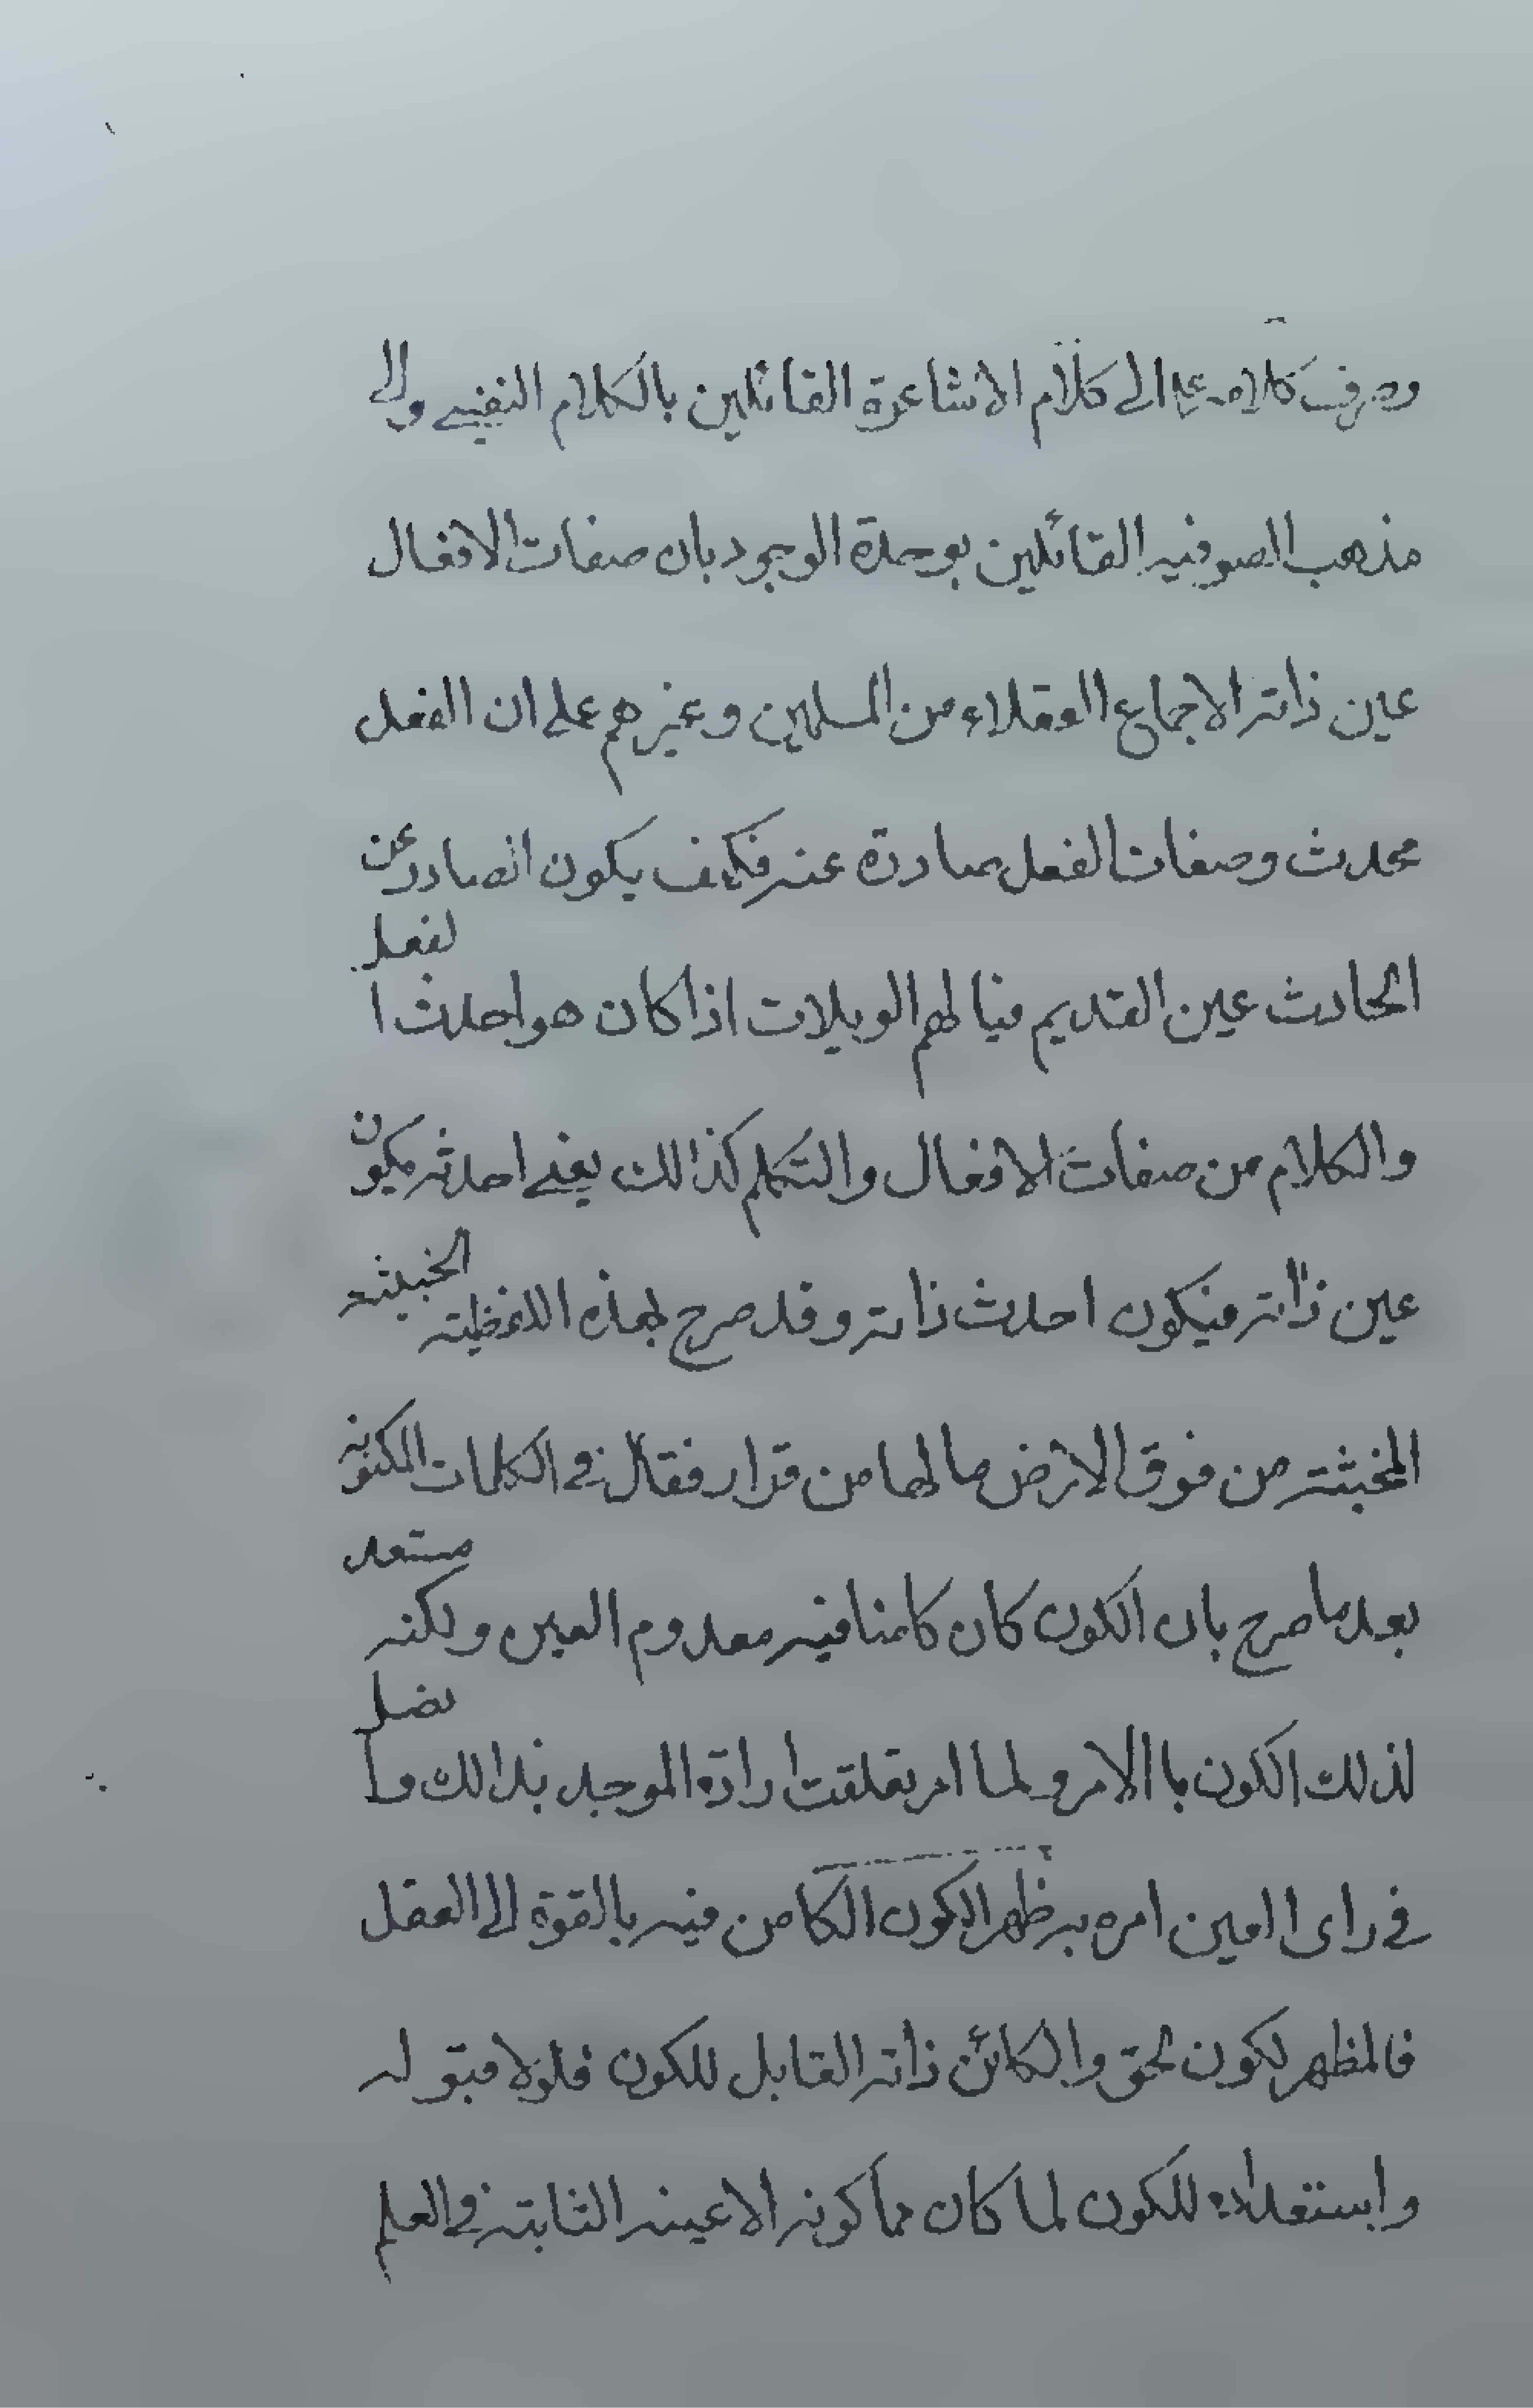 وصرف كلامه الى كلام الاشاعرة القائلين بالكلام النفسي والى
مذهب الصوفيه القائلين بوحدة الوجود بان صفات الافعال
عين ذاته الاجماع العقلاء من المسلمين وغيرهم على ان الفعل
محدث وصفات الفعل صادرة عنه فكيف يكون الصادر عن
الحادث عين القديم فيا لهم الويلات اذا كان هو احدث الفعل
والكلام من صفات الافعال والتكلم كذالك يعني احدثه فيكون
عين ذاته فيكون احدث ذاته وقد صرح بهذه اللفظية الخبيثه
المخبثته من فوق الارض ما لها من قرار فقال في الكلمات المكنونه
بعد ما صرح بان الكون كان كامنا فيه معدوم العين ولكنه مستعد
لذلك الكون با الامر ولما امر تعلقت ارادة الموجد بذالك واتصل
في راى العين امره به ظهر الكون الكامن فيه بالقوة الى الفعل
فالمظهر لكون لحق والكائن ذاته القابل للكون فلولا قبوله
واستعداده للكون لما كان فما كونه الا عينه الثابته في العلم